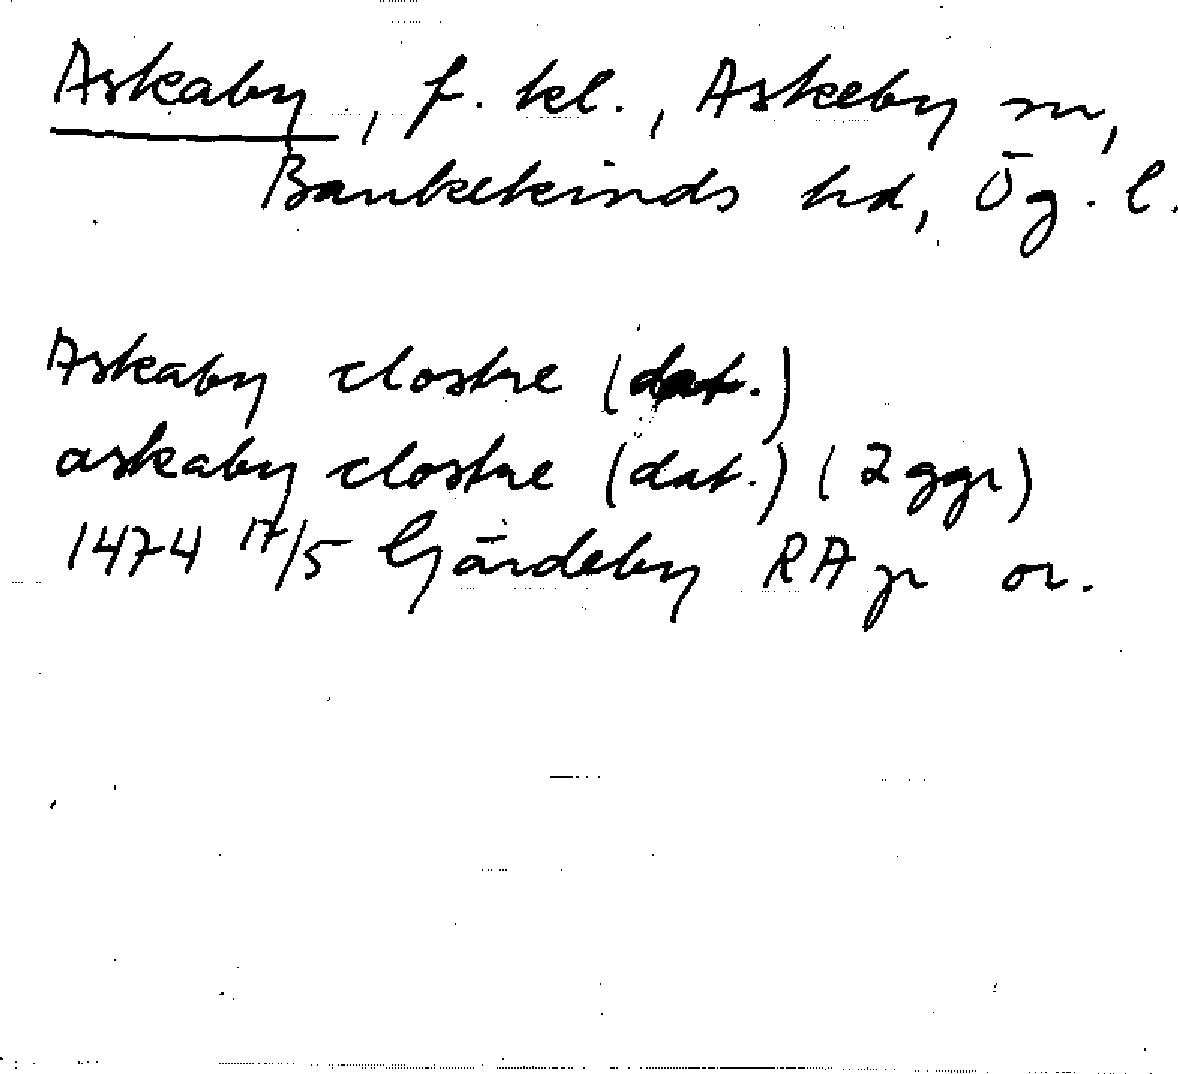 Askaby, f. kl., Askeby sn,
Bankekinds hd, Ög. l.
Askaby clostre (dat.)
askaby clostre (dat.) (2 ggr)
1474 17/5 Gärdeby RAp or.